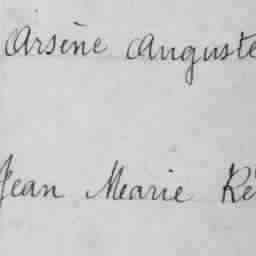 Arsène Auguste
Jean Marie Ré